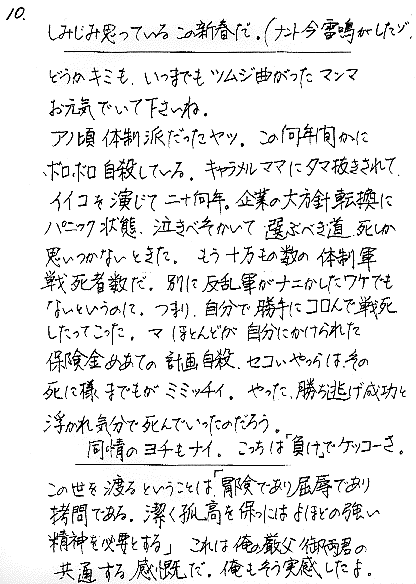 10.
しみじみ思っている この新春だ。(ナント今雷鳴がしたゾ。
どうかキミも、いつまでも ツムジ曲がった マンマ
お元気でいて下さいね。
アノ頃 体制派だったヤツ。この何年間かに
ボロボロ自殺している。キャラメルママにタマ抜きされて
イイコを演じて 二十何年。企業の大方針転換に
パニック状態、泣きべそかいて 選ぶべき道 死しか
思いつかないときた。もう十万もの数の 体制軍
戦死者数だ。別に 反乱軍がナニかしたワケでも
ないというのに。つまり、自分で勝手にコロんで戦死
したってこった。マ ほとんどが 自分にかけられた
保険金めあての 計画自殺、セコいやつらは、その
死に様までもが ミミッチィ。やった、勝ち逃げ成功と
浮かれ気分で死んでいったのだろう。
同情のヨチもナイ。こっちは「負け」でケッコーさ。
この世を渡るということは「冒険であり、屈辱であり
拷問である。潔く孤高を保つにはよほどの強い
精神を必要とする」これは俺の厳父
共通する感慨だ。俺もそう実感したよ。